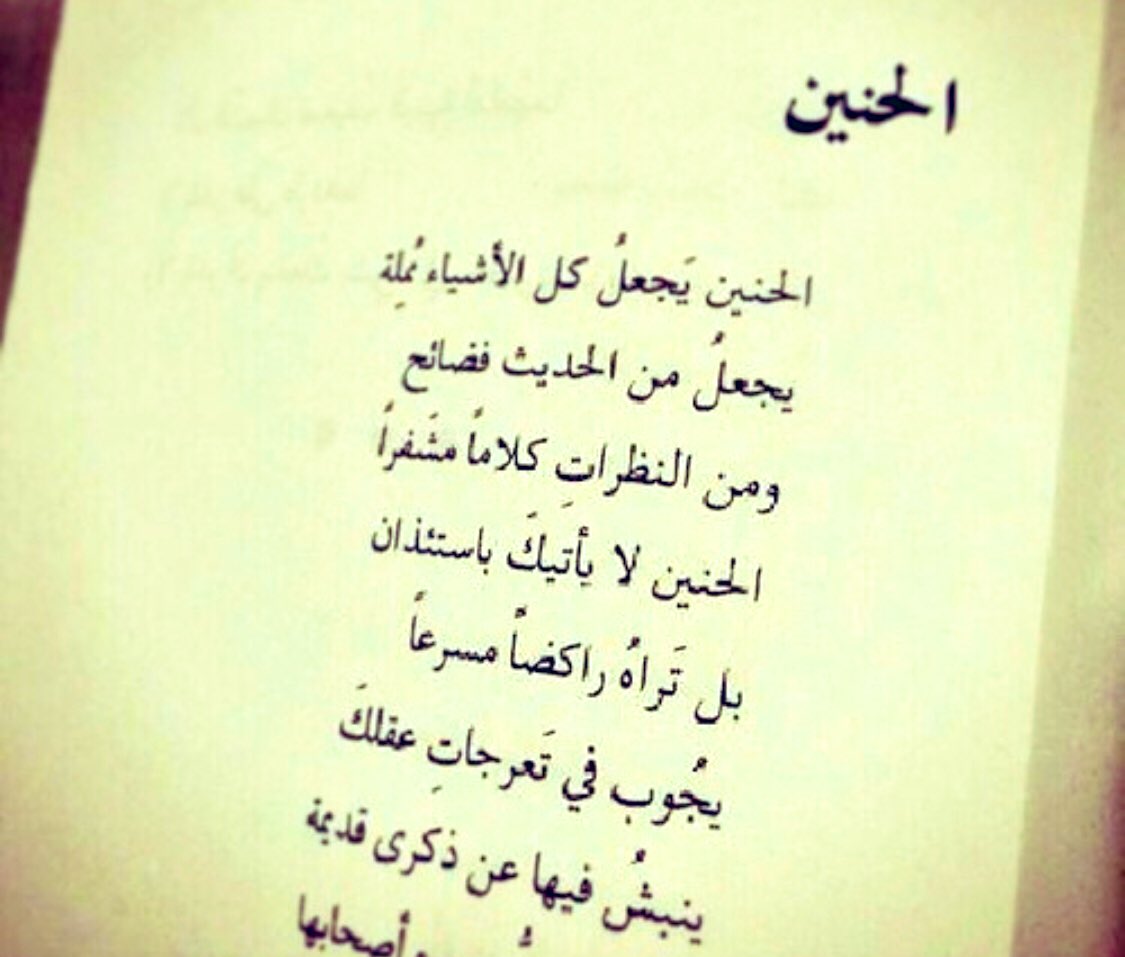 الحنين
الحنين يَجعلُ كل الأشياء مُملِة
يجعلُ من الحديث فضائح
ومن النظراتِ كلاماً مشَفراً
الحنين لا يأتيكَ باستئذان
بل تَراهُ راكضاً مسرعاً
يجُوب في تَعرجاتِ عقلكَ
ينبشُ فيها عن ذكرى قديمة
أصحابها